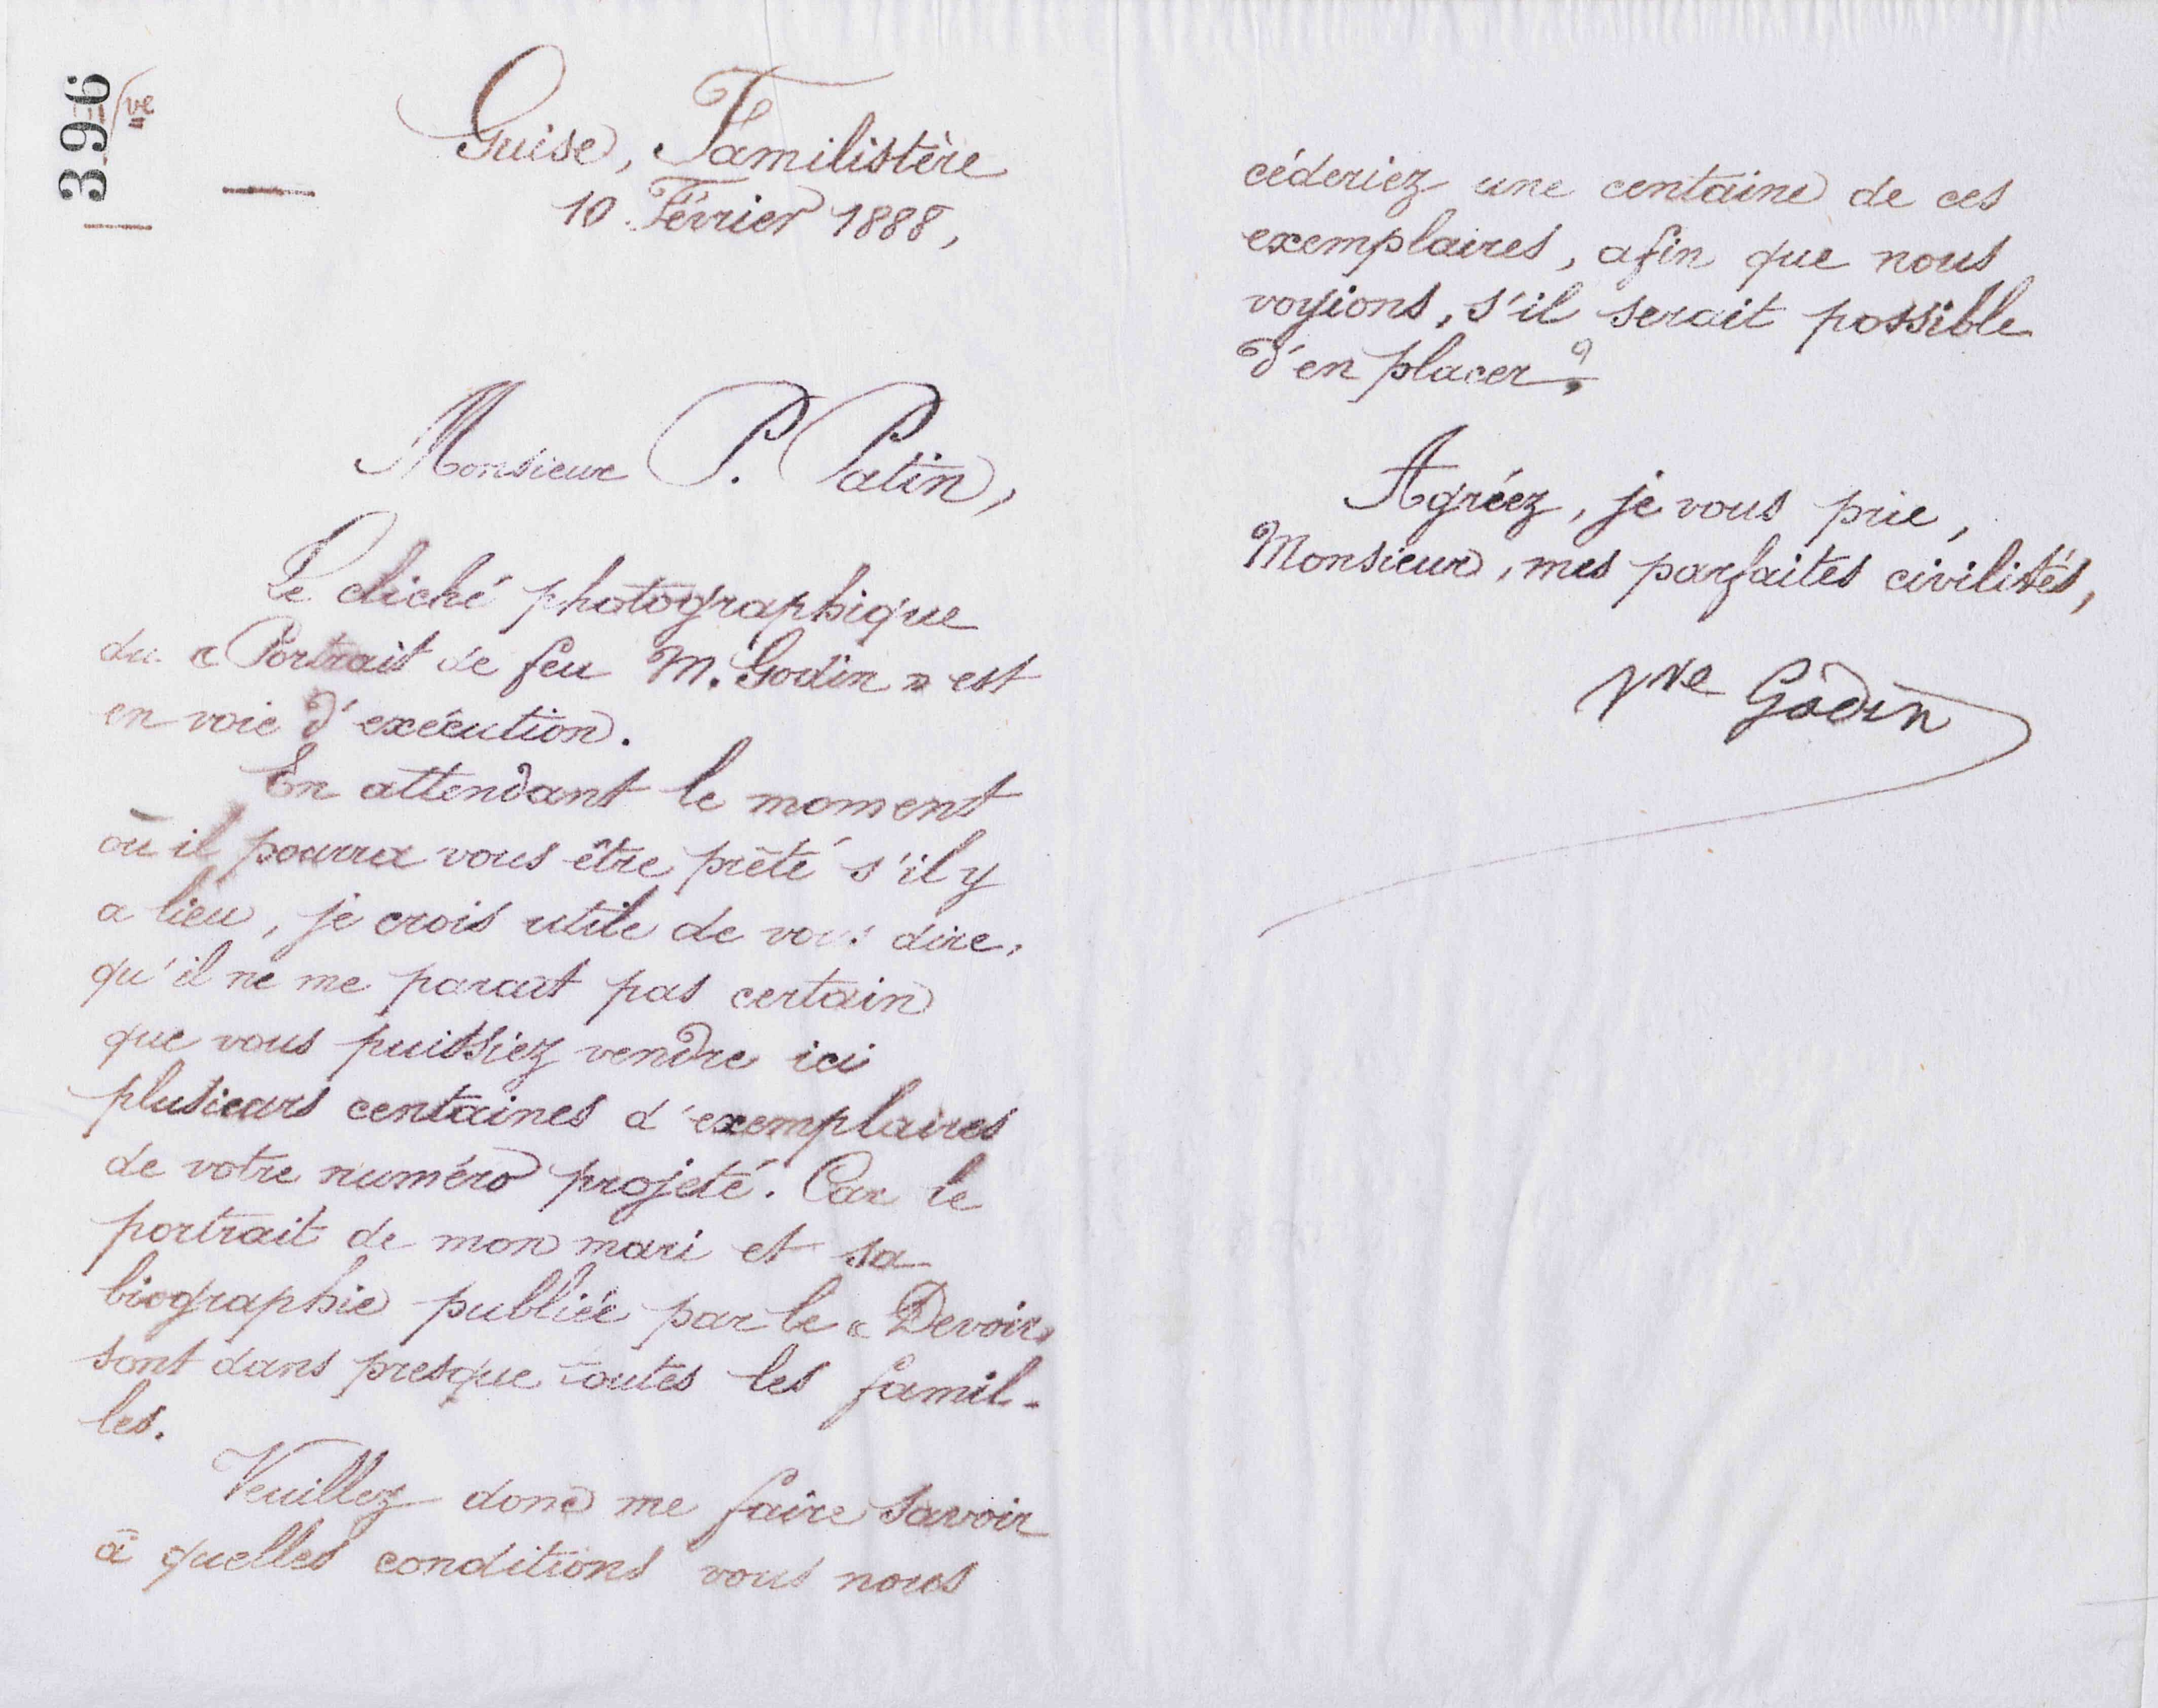 396
ve
Guise, Familistère
10 Février 1888,
Monsieur P. Patin,
Le cliché photographique
du « Portrait de feu M. Godin » est
en voie d'exécution.
En attendant le moment
où il pourra vous être prêté s'il y
a lieu, je crois utile de vous dire,
qu'il ne me parait pas certain
que vous puissiez vendre ici
plusieurs centaines d'exemplaires
de votre numéro projeté. Car le
portrait de mon mari et sa
biographie publiée par le « Devoir »
sont dans presque toutes les famil-
les.
Veuillez donc me faire savoir
à quelles conditions vous nous
céderiez une centaine de ces
exemplaires, afin que nous
voyions, s'il serait possible
d'en placer?
Agréez, je vous prie,
Monsieur, mes parfaites civilités,
Vve Godin